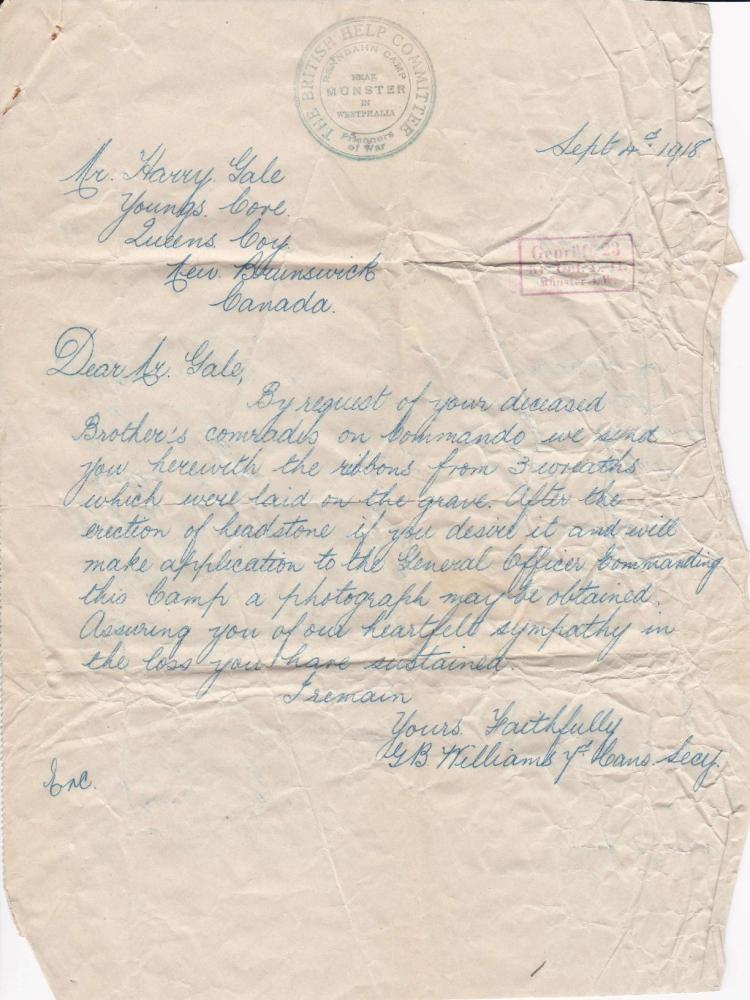 THE BRITISH HELP COMMITTEE
RENNBAHN CAMP
NEAR
MÜNSTER
IN
WESTPHALIA
Prisoners
of War
Sept 4th 1918.
Mr. Harry Gale
Youngs. Cove.
Queens. Coy.
New. Brunswick
Canada.
Dear Mr. Gale,
By request of your deceased
Brother's comrades on Commando we send
you herewith the ribbons from 3 wreaths
which were laid on the grave. After the
erection of headstone if you desire it and will
make application to the General Officer Commanding
this Camp a photograph may be obtained.
Assuring you of our heartfelt sympathy in
the loss you have sustained.
I remain
Yours. Faithfully
GB Williams Hans. Secy.
Enc.
Geprüft
Münster